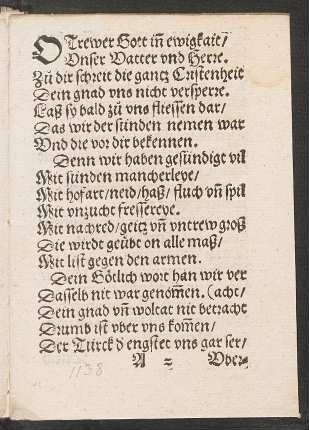 O Trewer Gott in̄ ewigkait/
Vnser Vatter vnd Herre.
Zů dir schreit die gantz Cristenheit
Dein gnad vns nicht versperre.
Laß so bald zů vns fliessen dar/
Das wir der sünden nemen war
Vnd die vor dir bekennen.
Denn wir haben gesündigt vil
Mit sünden mancherleye/
Mit hofart/neid/haß/ fluch vn̄ spil
Mit vnzucht fressereye.
Mit nachred/geitz vn̄ vntrew groß
Die wirdt geübt on alle maß/
Mit list gegen den armen.
Dein Götlich wort han wir ver
Dasselb nit war genom̄en. (acht/
Dein gnad vn̄ woltat nit betracht
Drumb ist vber vns kom̄en/
Der Türck d engstet vns gar ser/
A ⸗ Vber⸗
1138